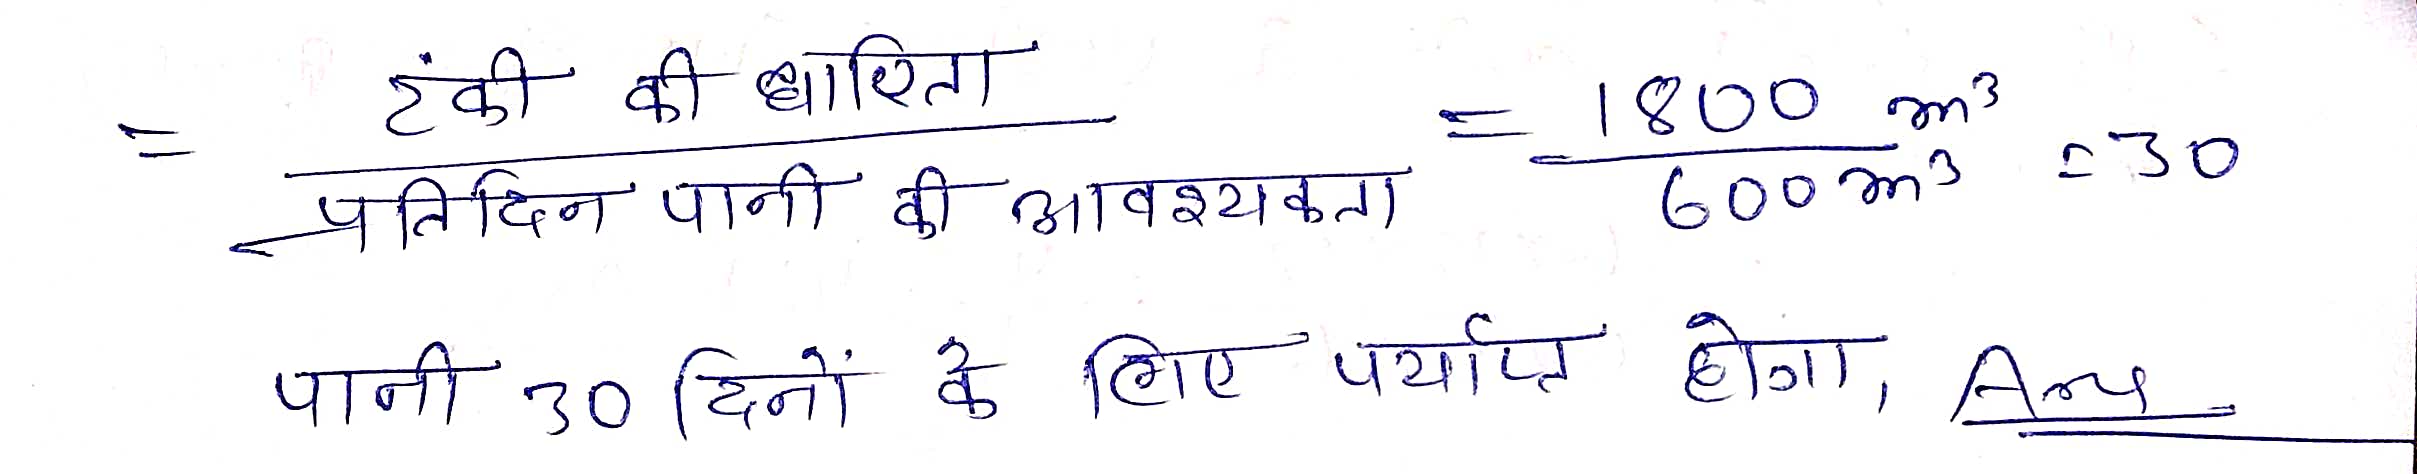 = टंकी की धारिता / प्रतिदिन पानी की आवश्यकता = 1800 m³ / 600 m³ = 30
पानी 30 दिनों के लिए पर्याप्त होगा, Ans